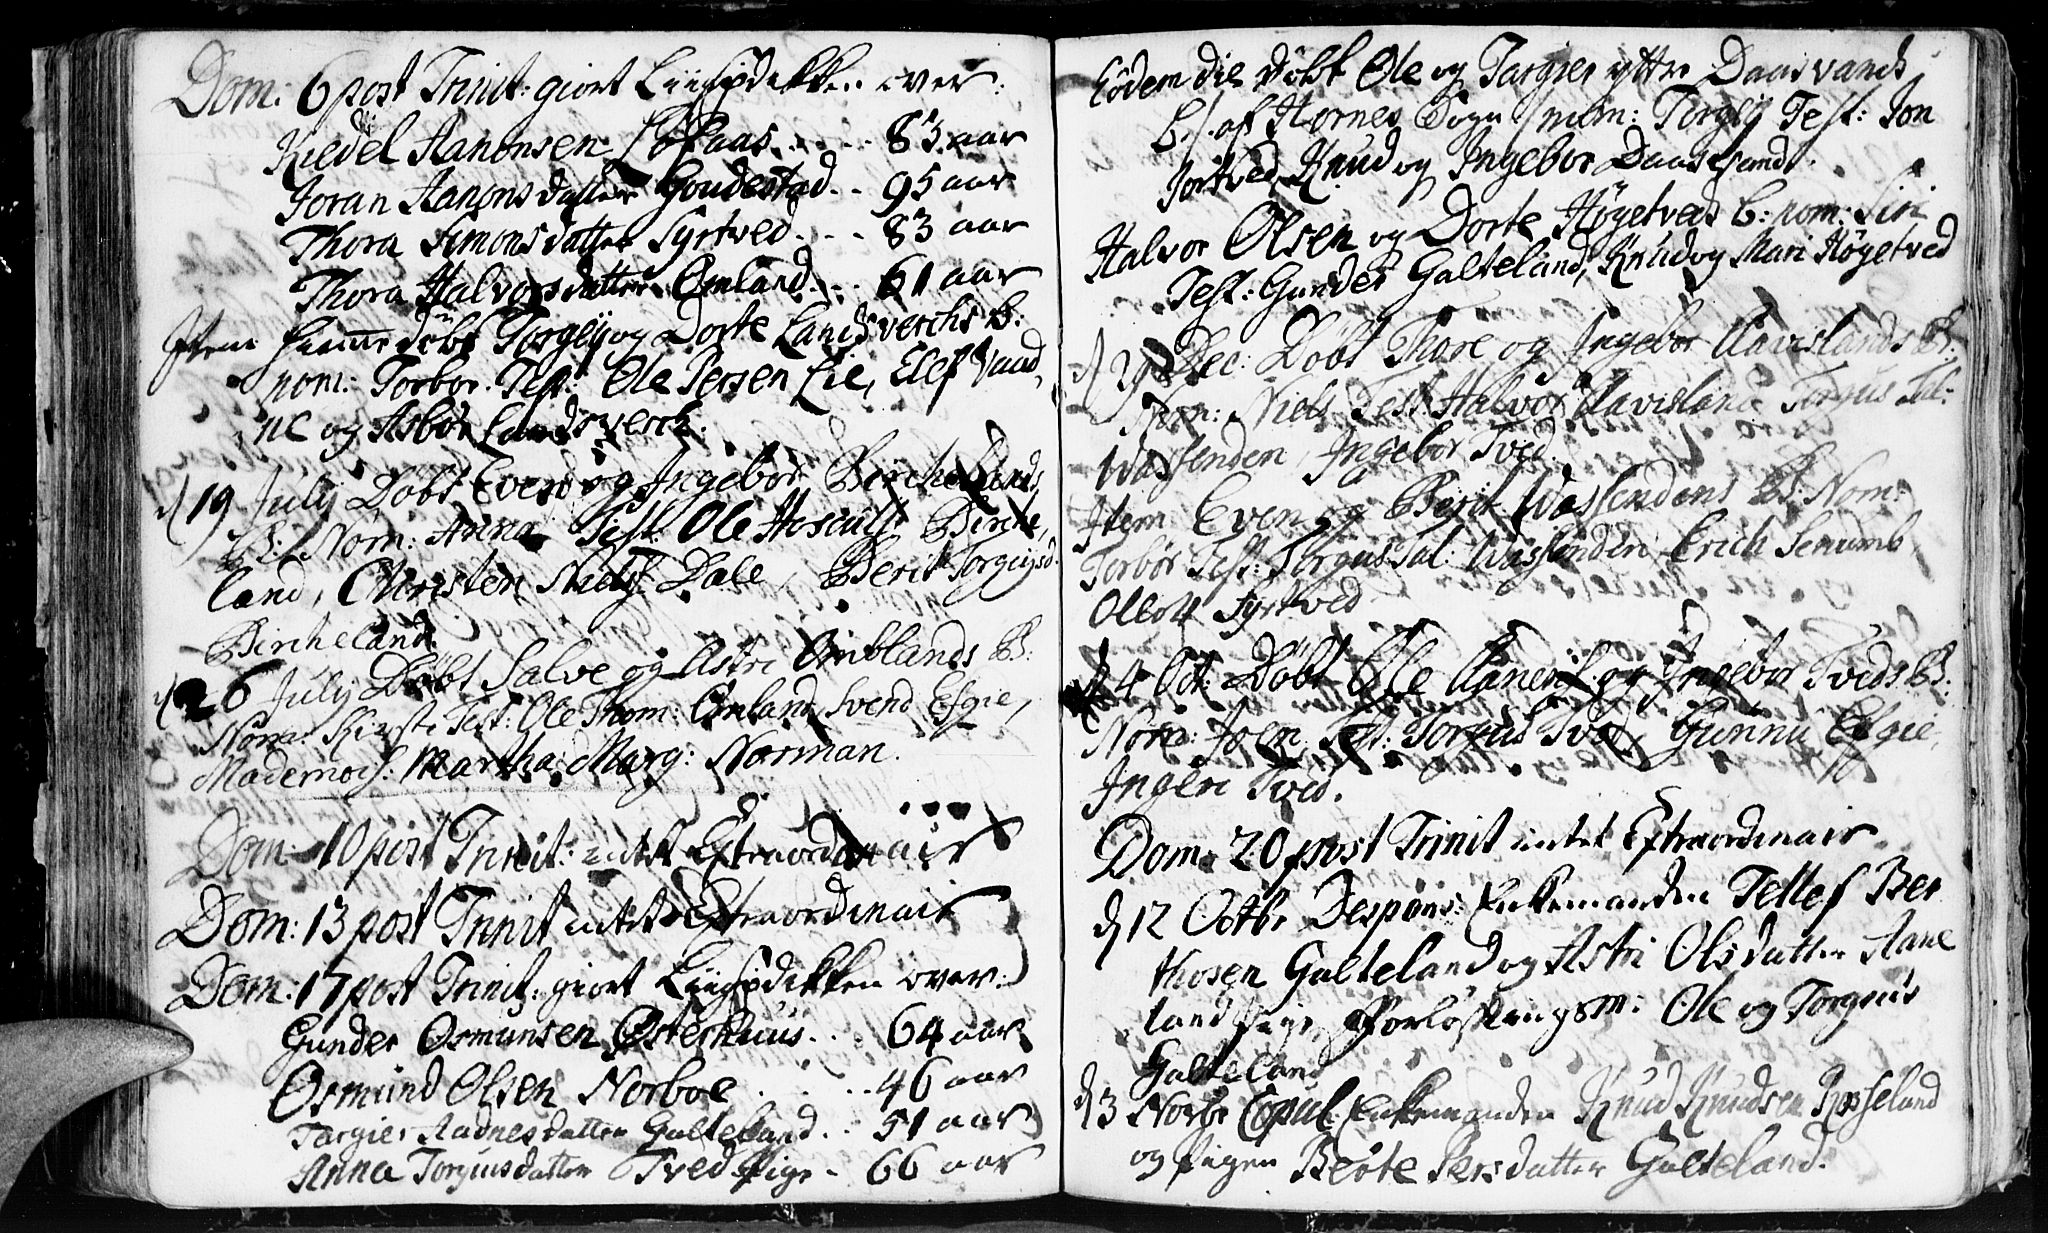 Dom: 6 post Trinit: giort Liigprædikken over:
Kiedel Aanonsen Løpaas.... 83 aar
Joran Aanons datter Goudestad.. 95 aar
Thora Simons datter Syrtved... 83 aar
Thora Halvors datter Omland... 61 aar
Item samme døbt Torgeij og Dorte Landsverchs B:
nom: Torbor. Test: Ole Persen Lie, Elef
ne og Asbør Landsverch.
d 19 July Døbt Even og Ingebor Birchelands
B: Nom: Anna Test: Ole Birche,
land, Christen Niels: Dale, Berit Torgiusd
Bircheland
d 26 July Døbt Salve og Astri Omblands B:
Nom: Kirsti Test: Ole Thom: Omland Svend Esgie,
Mademois: Martha Marg: Norman.
Dom: 10 post Trinit: intet Extraordinair
Dom: 13 post Trinit intet Extraordinair
Dom: 17 post Trinit: giort Liigprædikken over:
Gunder Osmunsen Østerhuus... 64 aar
Osmund Olsen Norboe.... 46 aar
Targier Aadnes datter Galteland.. 51 aar
Anna Torgius datter Tved Pige - 66 aar
Eodem die døbt Ole og Targier yttre Daasvands
B. af Hornes Sogn nom: Torgeij Test: Jon
Jortved, Knud og Ingebor Daasvand.
Halvor Olsen og Dorte Høgetveds B: nom: Siri
Test: Gunder Galteland, Knud og Mari Høgetved
d Dec: Døbt Thore og Ingebor Aavislands B:
Nom: Niels Test: Halvor Aavisland Torgius Sal:
Wassenden, Ingebor Tved.
Item Even og Berit Wassendens B: Nom:
Torbør Test: Torgius Sal: Wassenden Erich Senumb
Olloü Syrtved
d 4 Oct: Døbt Ole Aanens: og Ingebor Tveds B:
Nom: Joen, Test: Torgius Tved, Gunnu Esgie,
Ingeri Tved.
Dom: 20 post Trinit intet Extraordinair
d 12 Octbr Despons: Enkemanden Tellef Ber
thosen Galteland og Astri Olsdatter Aane
land Pige Forløfningsm: Ole og Torgius
Galteland
d 3 Novbr Copul: Enkemanden Knud Knudsen Rosseland
og Pigen Beøte Persdatter Galteland.